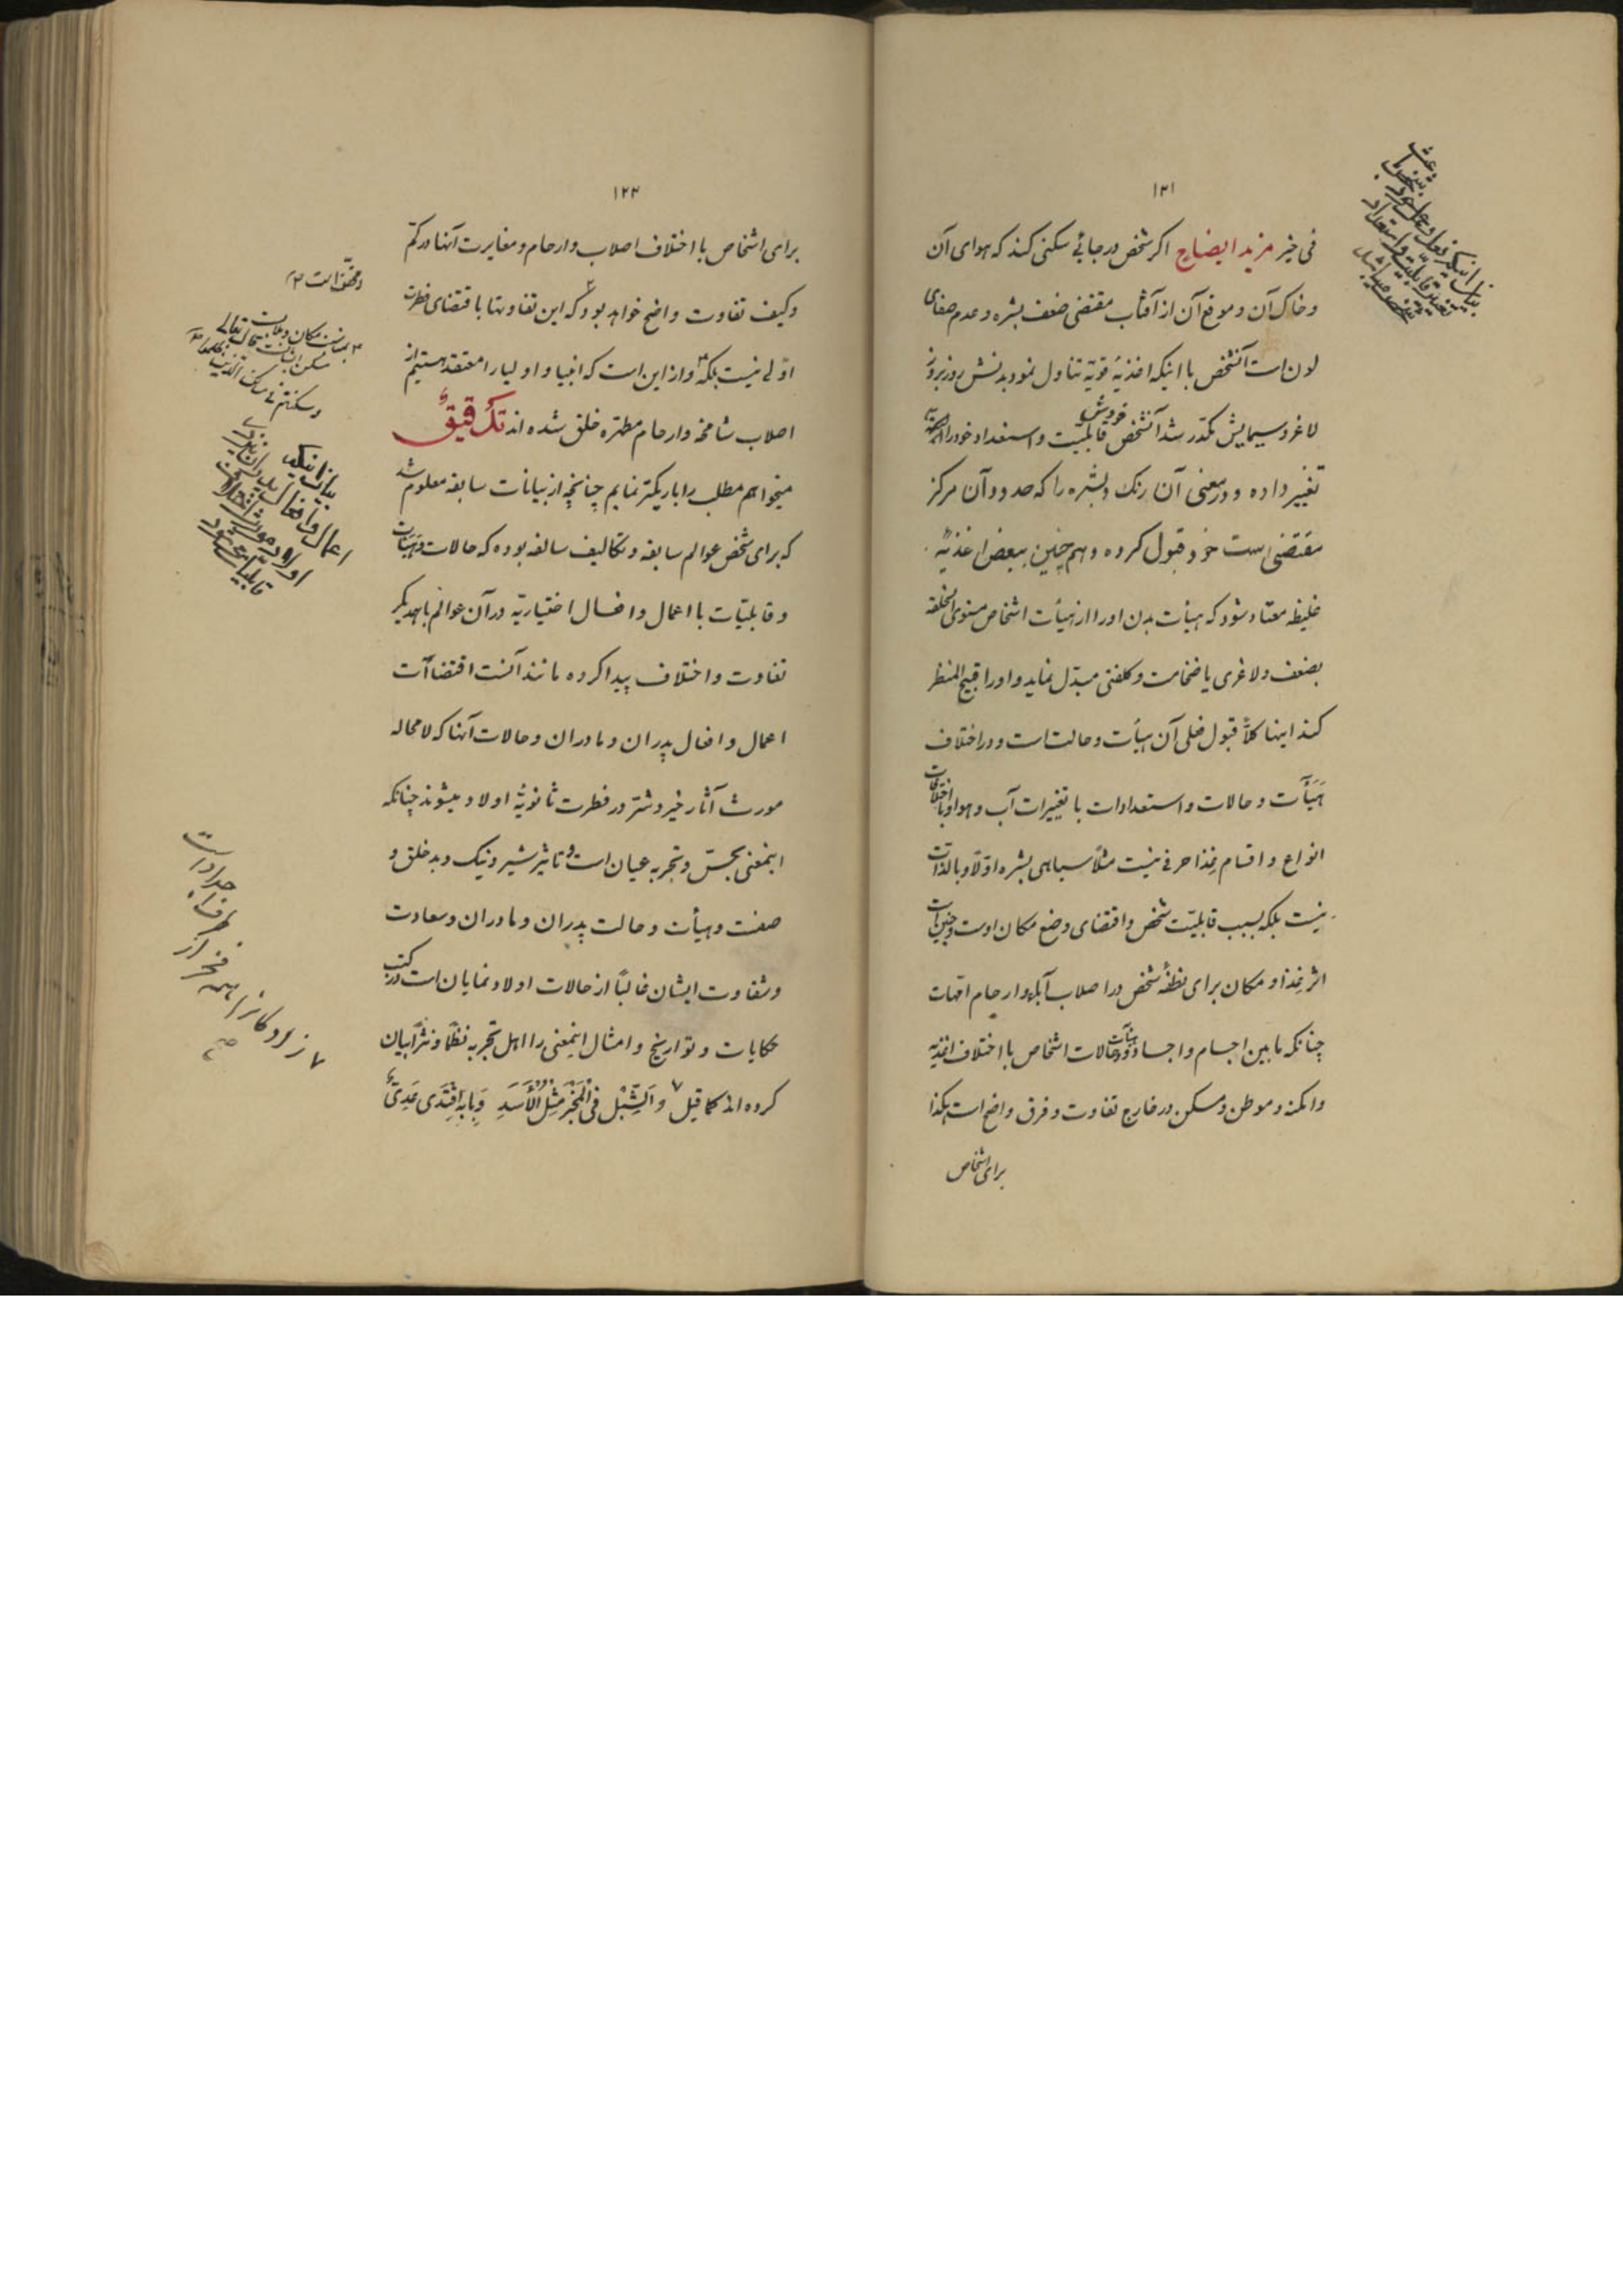 ۱۲۱
فی خیر مزید ایضاح اکر شخص در جائی سکنی کند که هوای آن
و خاک آن و موقع آن از آفتاب مقتضی ضعف بشره و عدم صفای
لون است آنشخص با اینکه اغذیهٔ قویّه تناول نمود بدنش روز بروز
لاغر و سیمایش مکدّر شد آنشخص خودش قابلیّت و استعداد خود را
تغییر داده و در معنی آن رنک و بشره را که حدود آن مرکز
مقتضی است خود قبول کرده و هم چنین ببعض اغذیهٔ
غلیظه معتاد شود که هیأت بدن او را از هیأت اشخاص مستوی الخلقه
بضعف و لاغری یا ضخامت و کلفتی مبدّل نماید و او را قبیح المنظر
کند اینها کلاً قبول فعلی آن هیأت و حالت است و در اختلاف
هیَآت و حالات و استعدادات با تغییرات آب و هوا و با اختلافات
انواع و اقسام غذا حرفی نیست مثلاً سیاهی بشره اوّلاً و بالذات
نیست بلکه بسبب قابلیّت شخص و اقتضای وضع مکان اوست و چنین است
اثر غذا و مکان برای نطفهٔ شخص در اصلاب آباء و ارحام امّهات
چنانکه مابین اجسام و اجساد و هیآت و حالات اشخاص با اختلاف اغذیه
و امکنه و موطن و مسکن در خارج تفاوت و فرق واضح است هکذا
برای اشخاص
بیان اینکه فعل و عمل خود شخص باعث
تغییر قابلیّت و استعداد
شخص میباشد
۱۲۲
برای اشخاص با اختلاف اصلاب و ارحام و مغایرت آنها در کمّ
و کیف تفاوت واضح خواهد بود ۲ که این تفاوتها با اقتضای فطرت
اوّلی نیست بلکه ۳ و از این است که انبیا و اولیا را معتقد هستیم از
اصلاب شامخه و ارحام مطهّره خلق شده اند تک قیقٌ
میخواهم مطلب را باریکتر نمایم چنانچه از بیانات سابقه معلوم شد
که برای شخص عوالم سابقه و تکالیف سالفه بوده که حالات و هیَآت
و قابلیّات با اعمال و افعال اختیاریّه در آن عوالم با همدیکر
تفاوت و اختلاف پیدا کرده مانند آنست اقتضاآت
اعمال و افعال پدران و مادران و حالات آنها که لا محاله
مورث آثار خیر و شرّ در فطرت ثانویّهٔ اولاد میشوند چنانکه
اینمعنی بحسّ و تجربه عیان است و تاثیر شیر و نیک و بد خلق و
صفت و هیأت و حالت پدران و مادران و سعادت
و شقاوت ایشان غالباً از حالات اولاد نمایان است در کتب
حکایات و تواریخ و امثال اینمعنی را اهل تجربه نظماً و نثراً بیان
کرده اند کما قیل ۷ وَ الشِّبْلُ فِی الْمَخْبَرِ مِثْلُ الْأَسَدِ وَ بِأَبِهِ اقْتَدَی عَدِیٌّ
۳ بمناسبت مکان
و سکنتم فی مساکن الذین ظلموا
بیان اینکه
اعمال و افعال پدران
اولاد مورث
قابلیّات میشود
۷ زادکانرا همه فخر از
طرف جدّ و اب است
صح